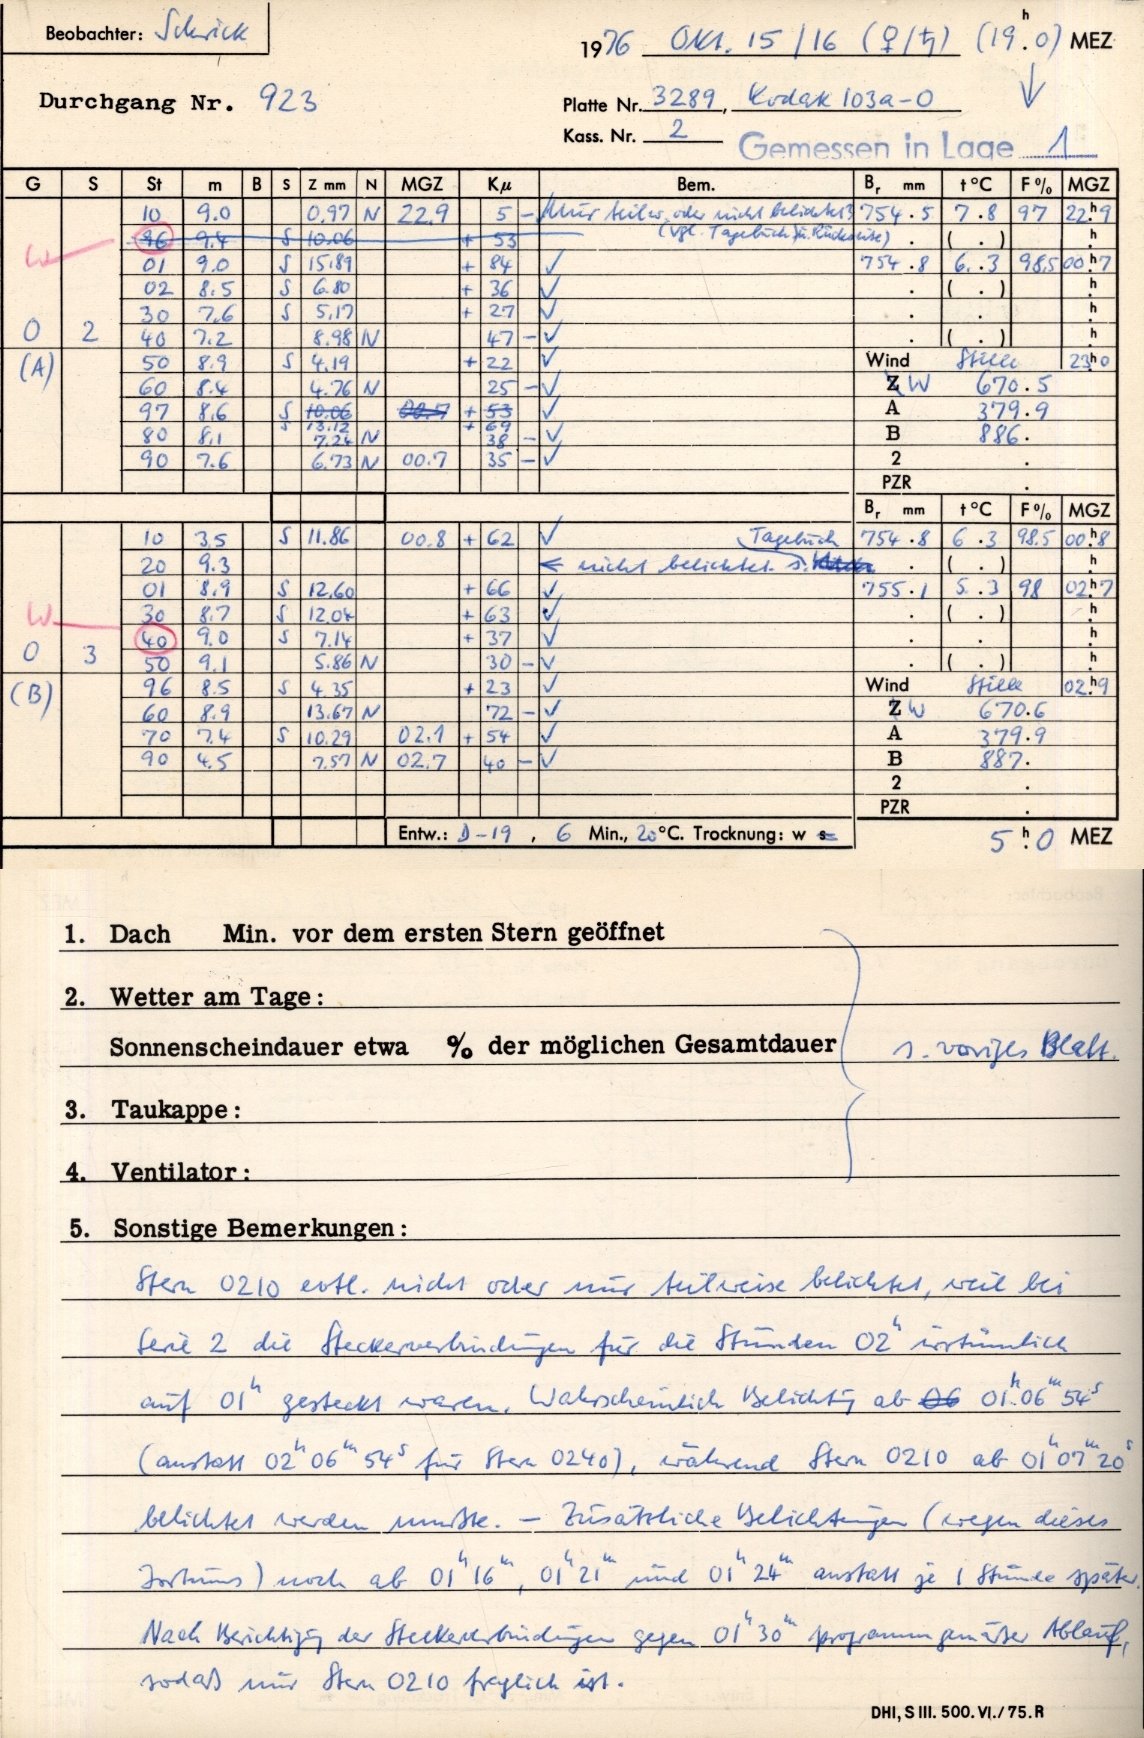 Beobachter: Schrick
1976 Okt. 15/16 (♀/♄) (19h.0) MEZ
Durchgang Nr. 923
Platte Nr. 3289, Kodak 103a-O
Kass. Nr. 2
Gemessen in Lage 1
G S St m B S Z mm N MGZ Kμ Bem. Br mm t°C F% MGZ
10 9.0 0.97 N 22.9 5 - nur teilw. oder nicht belichtet? 754.5 7.8 97 22h9
W 96 9.4 S 10.06 + 53 (vgl. Tagebuch u. Rückseite) . ( . ) h.
01 9.0 S 15.89 + 84 ✓ 754.8 6.3 98.5 00h7
02 8.5 S 6.80 + 36 ✓ . ( . ) h.
30 7.6 S 5.17 + 27 ✓ . . h.
0 2 40 7.2 8.98 N 47 - ✓ . ( . ) h.
(A) 50 8.9 S 4.19 + 22 ✓ Wind Stille 23h0
60 8.4 4.76 N 25 - ✓ Z W 670.5
97 8.6 S 10.06 00.7 + 53 ✓ A 379.9
S 13.12 + 69
80 8.1 7.24 N 38 - ✓ B 886.
90 7.6 6.73 N 00.7 35 - ✓ 2 .
PZR .
Br mm t°C F% MGZ
10 3.5 S 11.86 00.8 + 62 ✓ Tagebuch 754.8 6.3 98.5 00h8
20 9.3 ← nicht belichtet s. . ( . ) h.
01 8.9 S 12.60 + 66 ✓ 755.1 5.3 98 02h7
W 30 8.7 S 12.04 + 63 ✓ . ( . ) h.
40 9.0 S 7.14 + 37 ✓ . . h.
0 3 50 9.1 5.86 N 30 - ✓ . ( . ) h.
(B) 96 8.5 S 4.35 + 23 ✓ Wind Stille 02h9
60 8.9 13.67 N 72 - ✓ Z W 670.6
70 7.4 S 10.29 02.1 + 54 ✓ A 379.9
90 4.5 7.57 N 02.7 40 - ✓ B 887.
2 .
PZR .
Entw.: D-19, 6 Min., 20°C. Trocknung: w s 5h.0 MEZ
1. Dach Min. vor dem ersten Stern geöffnet
2. Wetter am Tage:
Sonnenscheindauer etwa % der möglichen Gesamtdauer s. voriges Blatt.
3. Taukappe:
4. Ventilator:
5. Sonstige Bemerkungen:
Stern 0210 evtl. nicht oder nur teilweise belichtet, weil bei
Serie 2 die Steckerverbindungen für die Stunden 02h irrtümlich
auf 01h gesteckt waren. Wahrscheinlich Belichtg ab 06 01h06m54s
(anstatt 02h06m54s für Stern 0240), während Stern 0210 ab 01h07m20s
belichtet werden mußte. – Zusätzliche Belichtungen (wegen dieses
Irrtums) noch ab 01h16m, 01h21m und 01h24m anstatt je 1 Stunde später.
Nach Berichtigg der Steckverbindungen gegen 01h30m programmgemäßer Ablauf,
sodaß nur Stern 0210 fraglich ist.
DHI, S III. 500. VI./75. R